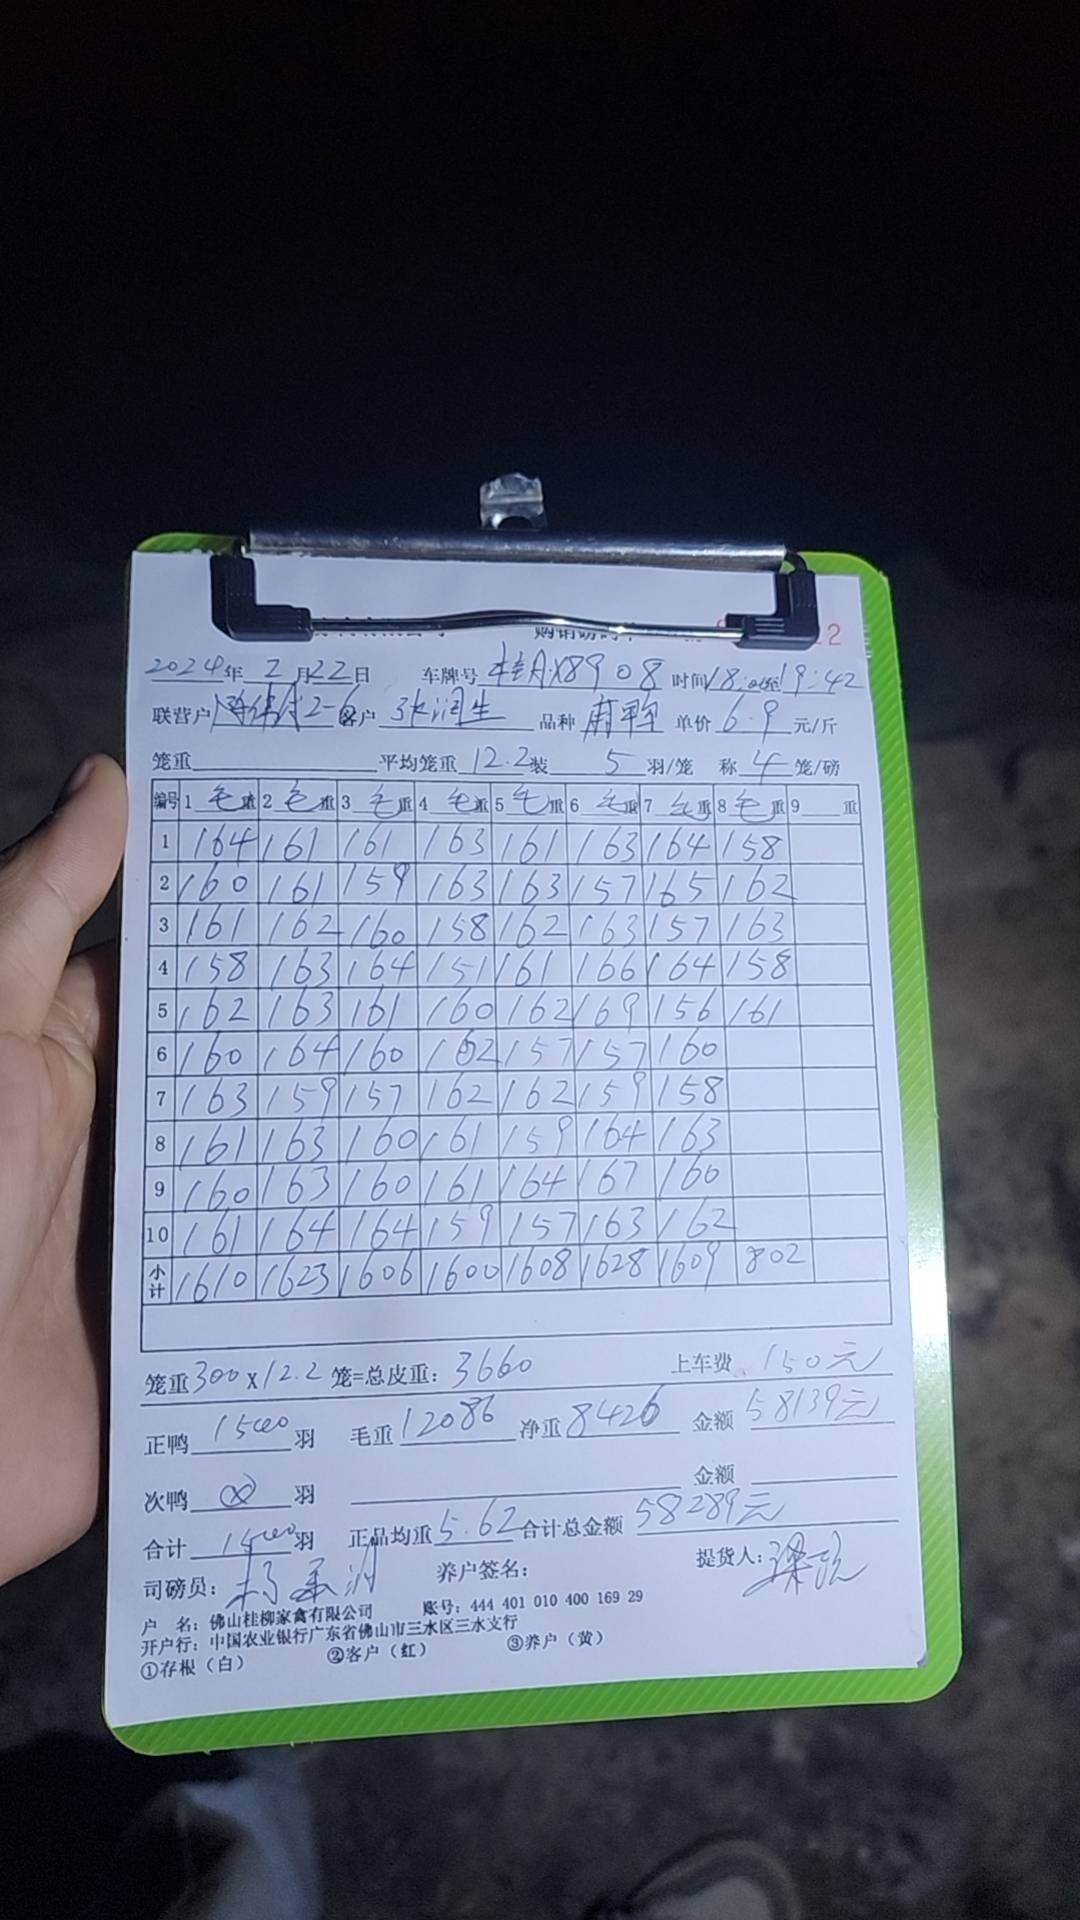 购销磅码单
22
2024年2月22日 车牌号 桂AX8908 时间18: 至19:42
联营户 2-6 客户 张润生 品种 麻鸭 单价6.9元/斤
笼重 平均笼重12.2装 5 羽/笼 称 4 笼/磅
编号 1毛重 2毛重 3毛重 4毛重 5毛重 6毛重 7毛重 8毛重 9 重
1 164 161 161 163 161 163 164 158
2 160 161 159 163 163 157 165 162
3 161 162 160 158 162 163 157 163
4 158 163 164 151 161 166 164 158
5 162 163 161 160 162 169 156 161
6 160 164 160 162 157 157 160
7 163 159 157 162 162 159 158
8 161 163 160 161 159 164 163
9 160 163 160 161 164 167 160
10 161 164 164 159 157 163 162
小计 1610 1623 1606 1600 1608 1628 1609 802
笼重300x12.2 笼=总皮重: 3660 上车费 150元
正鸭 1500 羽 毛重12086 净重8426 金额 58139元
次鸭 ⊗ 羽 金额
合计 1500 羽 正品均重5.62 合计总金额 58289元
司磅员: 养户签名: 提货人:
户 名: 佛山桂柳家禽有限公司 账号: 444 401 010 400 169 29
开户行: 中国农业银行广东省佛山市三水区三水支行
①存根（白） ②客户（红） ③养户（黄）